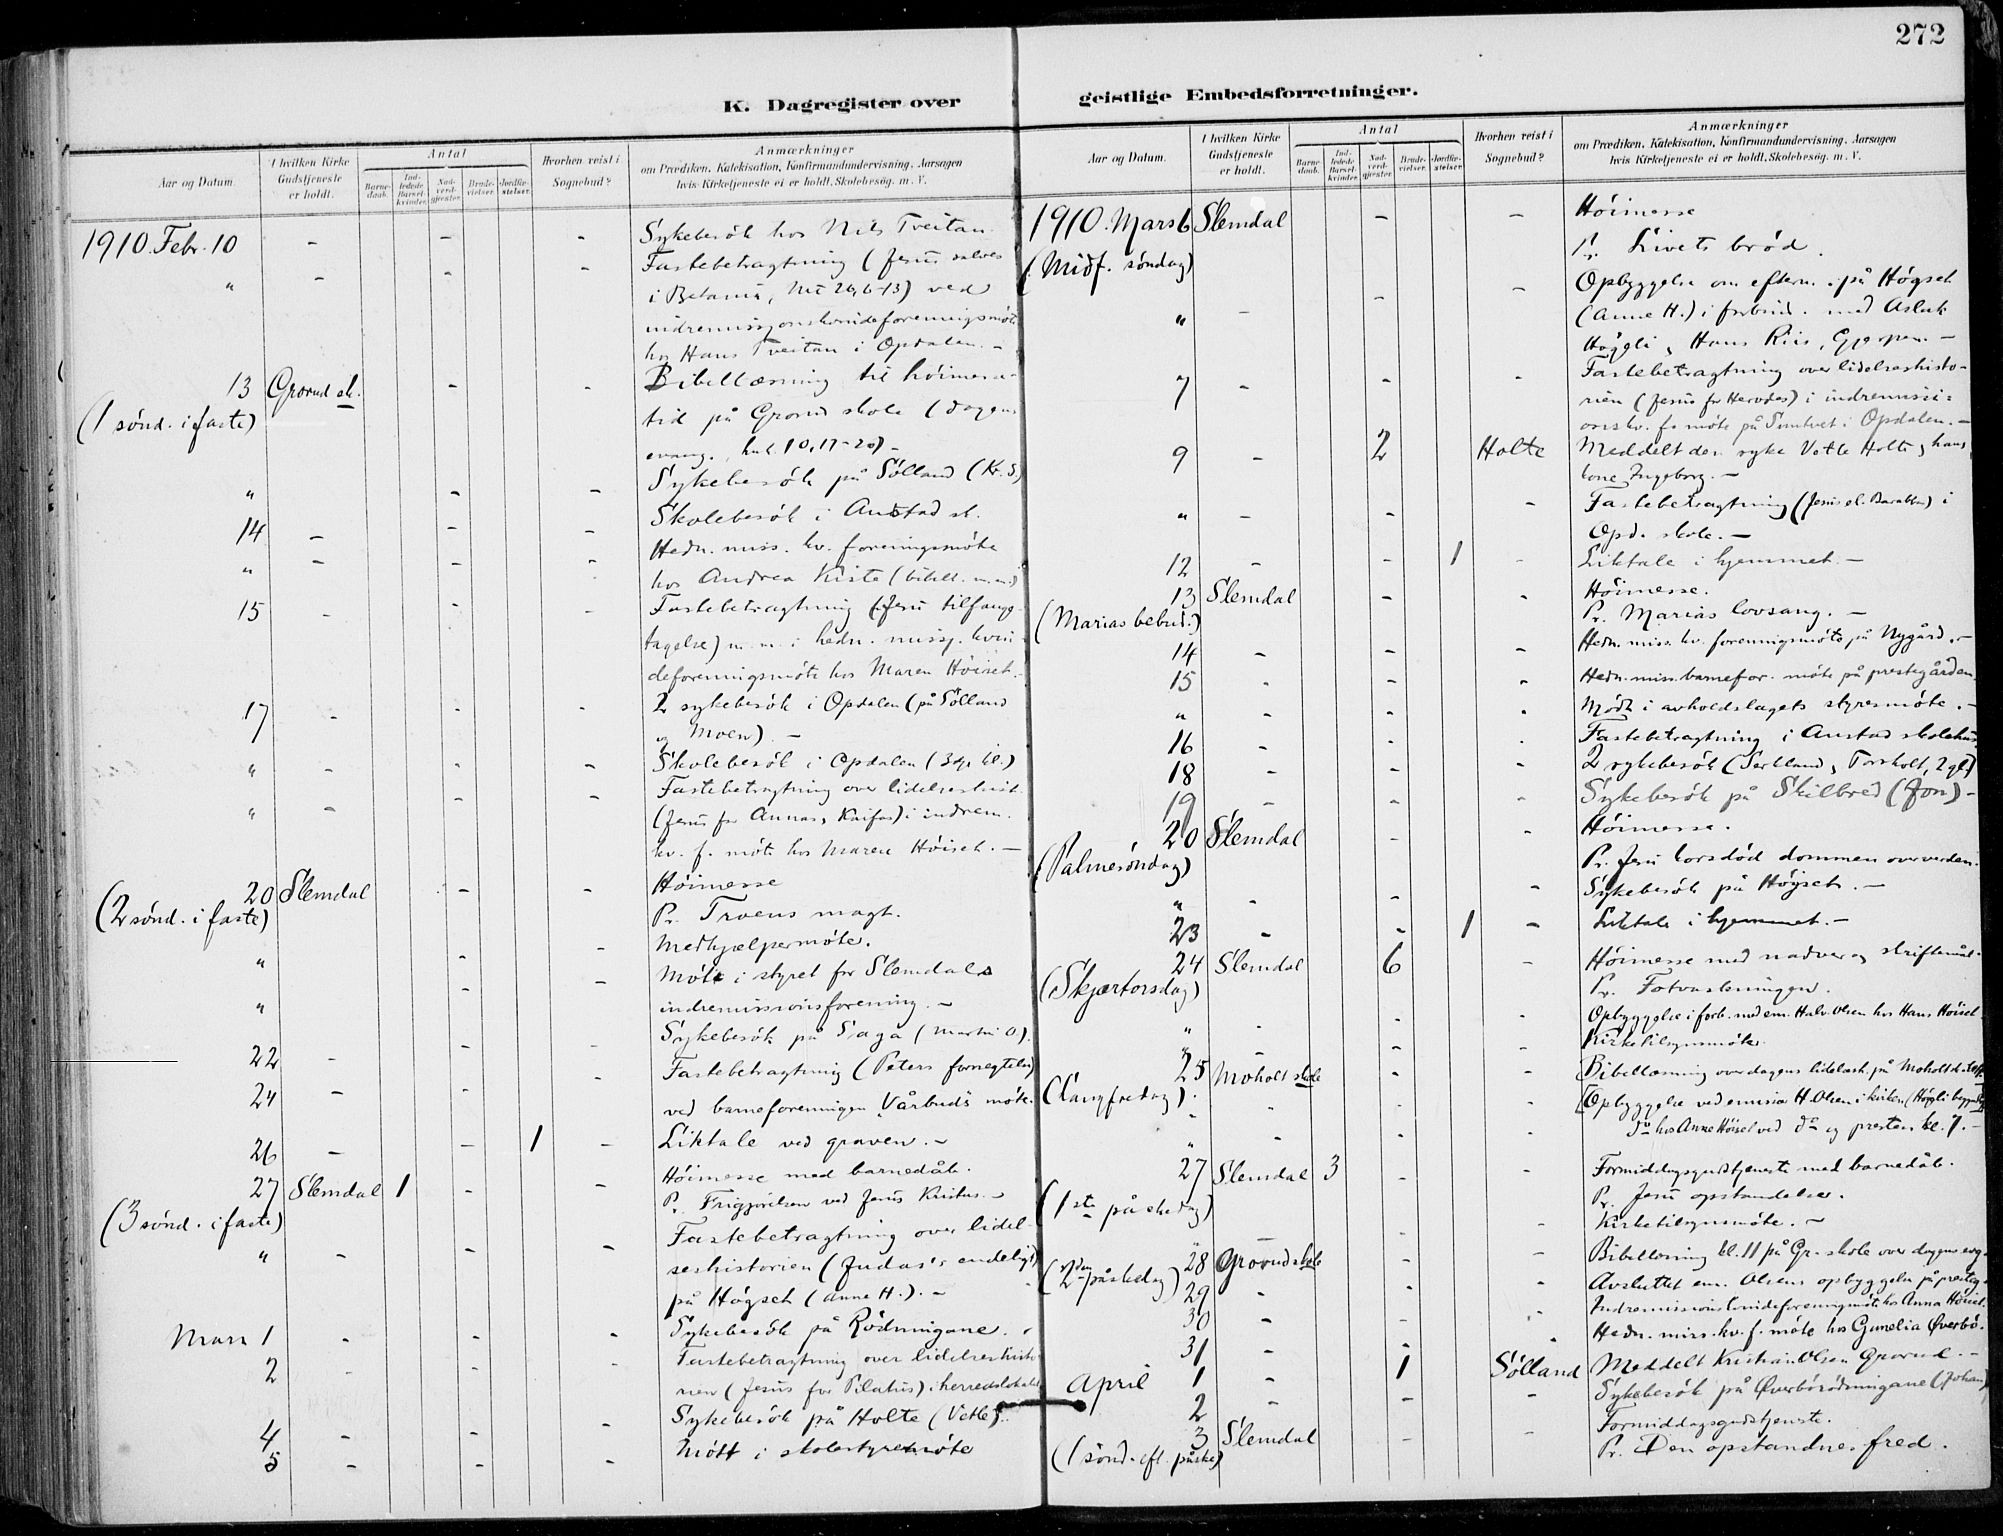 272
K. Dagregister over
geistlige Embedsforretninger.
Aar og Datum.
I hvilken Kirke
Gudstjeneste
er holdt.
Antal
Barne-
daab.
Ind-
ledede
Barsel-
kvinder.
Nad-
verd-
gjester.
Brude-
vielser.
Jordfæ-
stelser.
Hvorhen reist i
Sognebud?
Anmærkninger
om Prædiken, Katekisation, Konfirmandundervisning, Aarsagen
hvis Kirketjeneste ei er holdt, Skolebesøg. m. V.
1910. Febr. 10 - - - Sykebesök hos Nils Tveitan
" - - - Fastebetragtning (Jesus salves
i Betania, Mt 26,6-13) ved
indremissjonskvindeforeningsmöte
hos Hans Tveitan i Opdalen. -
13 Grorud sk. - - Bibellæsning til höimesse-
(1 sönd. i faste) tid på Grorud skole (dagens
evang. Luk. 10, 17-20) -
" - - Sykebesök på Sölland (Kr. S.)
14 - - - Skolebesök i Austad sk.
" - - - Hedn. miss. kv. foreningsmöte
hos Andrea Kiste (bibell. m.m.)
15 - - - Fastebetragtning (Jesu tilfange-
tagelse) m. m. i hedn. missj. kvin-
deforeningsmöte hos Maren Höiset.
17 - - - 2 sykebesök i Opdalen (på Sölland
og Moen). -
" - - - Skolebesök i Opdalen (3dje kl.)
" - - - Fastebetragtning over lidelseshist.
(Jesus for Annas, Kaifas) i indrem.
kv. f. möte hos Maren Höiset. -
20 Slemdal - - Höimesse
(2 sönd. i faste) Pr. Troens magt.
" - - Medhjælpermöte.
" - - Möte i styret for Slemdals
indremissionsforening. -
22 - - - Sykebesök på Saga (Martin O.)
24 - - - Fastebetragtning (Peters fornegtelse)
ved barneforeningen Vårbuds möte.
26 - - 1 - Liktale ved graven. -
27 Slemdal 1 - - Höimesse med barnedåb.
(3 sönd. i faste) Pr. Frigjörelsen ved Jesus Kristus. -
" - - - Fastebetragtning over lidel-
seshistorien (Judas's endeligt)
på Högset (Anne H.). -
Mars 1 - - - Sykebesök på Rödningane.
2 - - - Fastebetragtning over lidelseshisto-
rien (Jesus for Pilatus) i herredslokalet
4 - - - Sykebesök på Holte (Vetle).
5 - - - Mött i skolestyremöte
Aar og Datum.
I hvilken Kirke
Gudstjeneste
er holdt.
Antal
Barne-
daab.
Ind-
ledede
Barsel-
kvinder.
Nad-
verd-
gjester.
Brude-
vielser.
Jordfæ-
stelser.
Hvorhen reist i
Sognebud?
Anmærkninger
om Prædiken, Katekisation, Konfirmandundervisning, Aarsagen
hvis Kirketjeneste ei er holdt, Skolebesøg. m. V.
1910. Mars 6 Slemdal - - Höimesse
(Midf. söndag) Pr. Livets bröd.
" - - - Opbyggelse om efterm. på Högset
(Anne H.) i forbind. med Aslak
Högli, Hans Riis, Gjerpen. -
7 - - - Fastebetragtning over lidelseshisto-
rien (Jesus for Herodes) i indremissi-
onskv. f. möte på Sundvet i Opdalen. -
9 - 2 Holte Meddelt den syke Vetle Holte, hans
kone Ingeborg. -
" - - - Fastebetragtning (Jesus el. Barabbas) i
Opd. skole. -
12 - - 1 - Liktale i hjemmet. -
13 Slemdal - - Höimesse.
(Marias bebud.) Pr. Marias lovsang. -
14 - - - Hedn. miss. kv. foreningsmöte på Nygård. -
15 - - - Hedn. miss. barnefor. möte på prestegården.
" - - - Mött i avholdslagets styresmöte. -
16 - - - Fastebetragtning i Austad skolehus
18 - - - 2 sykebesök
19 - - - Sykebesök på Skilbred (Jon) -
20 Slemdal - - Höimesse.
(Palmesöndag) Pr. Jesu korsdöd dommen over verden.
" - - - Sykebesök på Högset. -
23 - - 1 - Liktale i hjemmet. -
24 Slemdal 6 - Höimesse med nadver og skriftemål.
(Skjærtorsdag) Pr. Fotvaskningen.
" - - - Opbyggelse i forb. med em. Halv. Olsen hos Hans Höiset.
" - - - Kirketilsynsmöte.
25 Moholt skole - - Bibellæsning over dagens lidelsesh. på Moholt
(Langfredag) - - - Opbyggelse ved emissær H. Olsen i kirken
" - - - do hos Anne Höiset ved do og presten kl. 7. -
27 Slemdal 3 - - Formiddagsgudstjeneste med barnedåb.
(1ste påskedag) Pr. Jesu opstandelse.
" - - - Kirketilsynsmöte. -
28 Grorud skole - - Bibellæsning kl. 11 på Gr. skole over dagens evg.
(2den påskedag)
29 - - - Avsluttet em. Olsens opbyggelse på presteg.
30 - - - Indremissionskvindeforeningsmöte hos Anna Höiset.
31 - - - Hedn. miss. kv. f. möte hos Gunelia Øverbö.
April 1 - 1 Sölland Meddelt Kristian Olsen Grorud. -
2 - - - Sykebesök på Øverbörödningane (Johan)
3 Slemdal - - Formiddagsgudstjeneste.
(1 sönd. eft. påske) Pr. Den opstandnes fred.